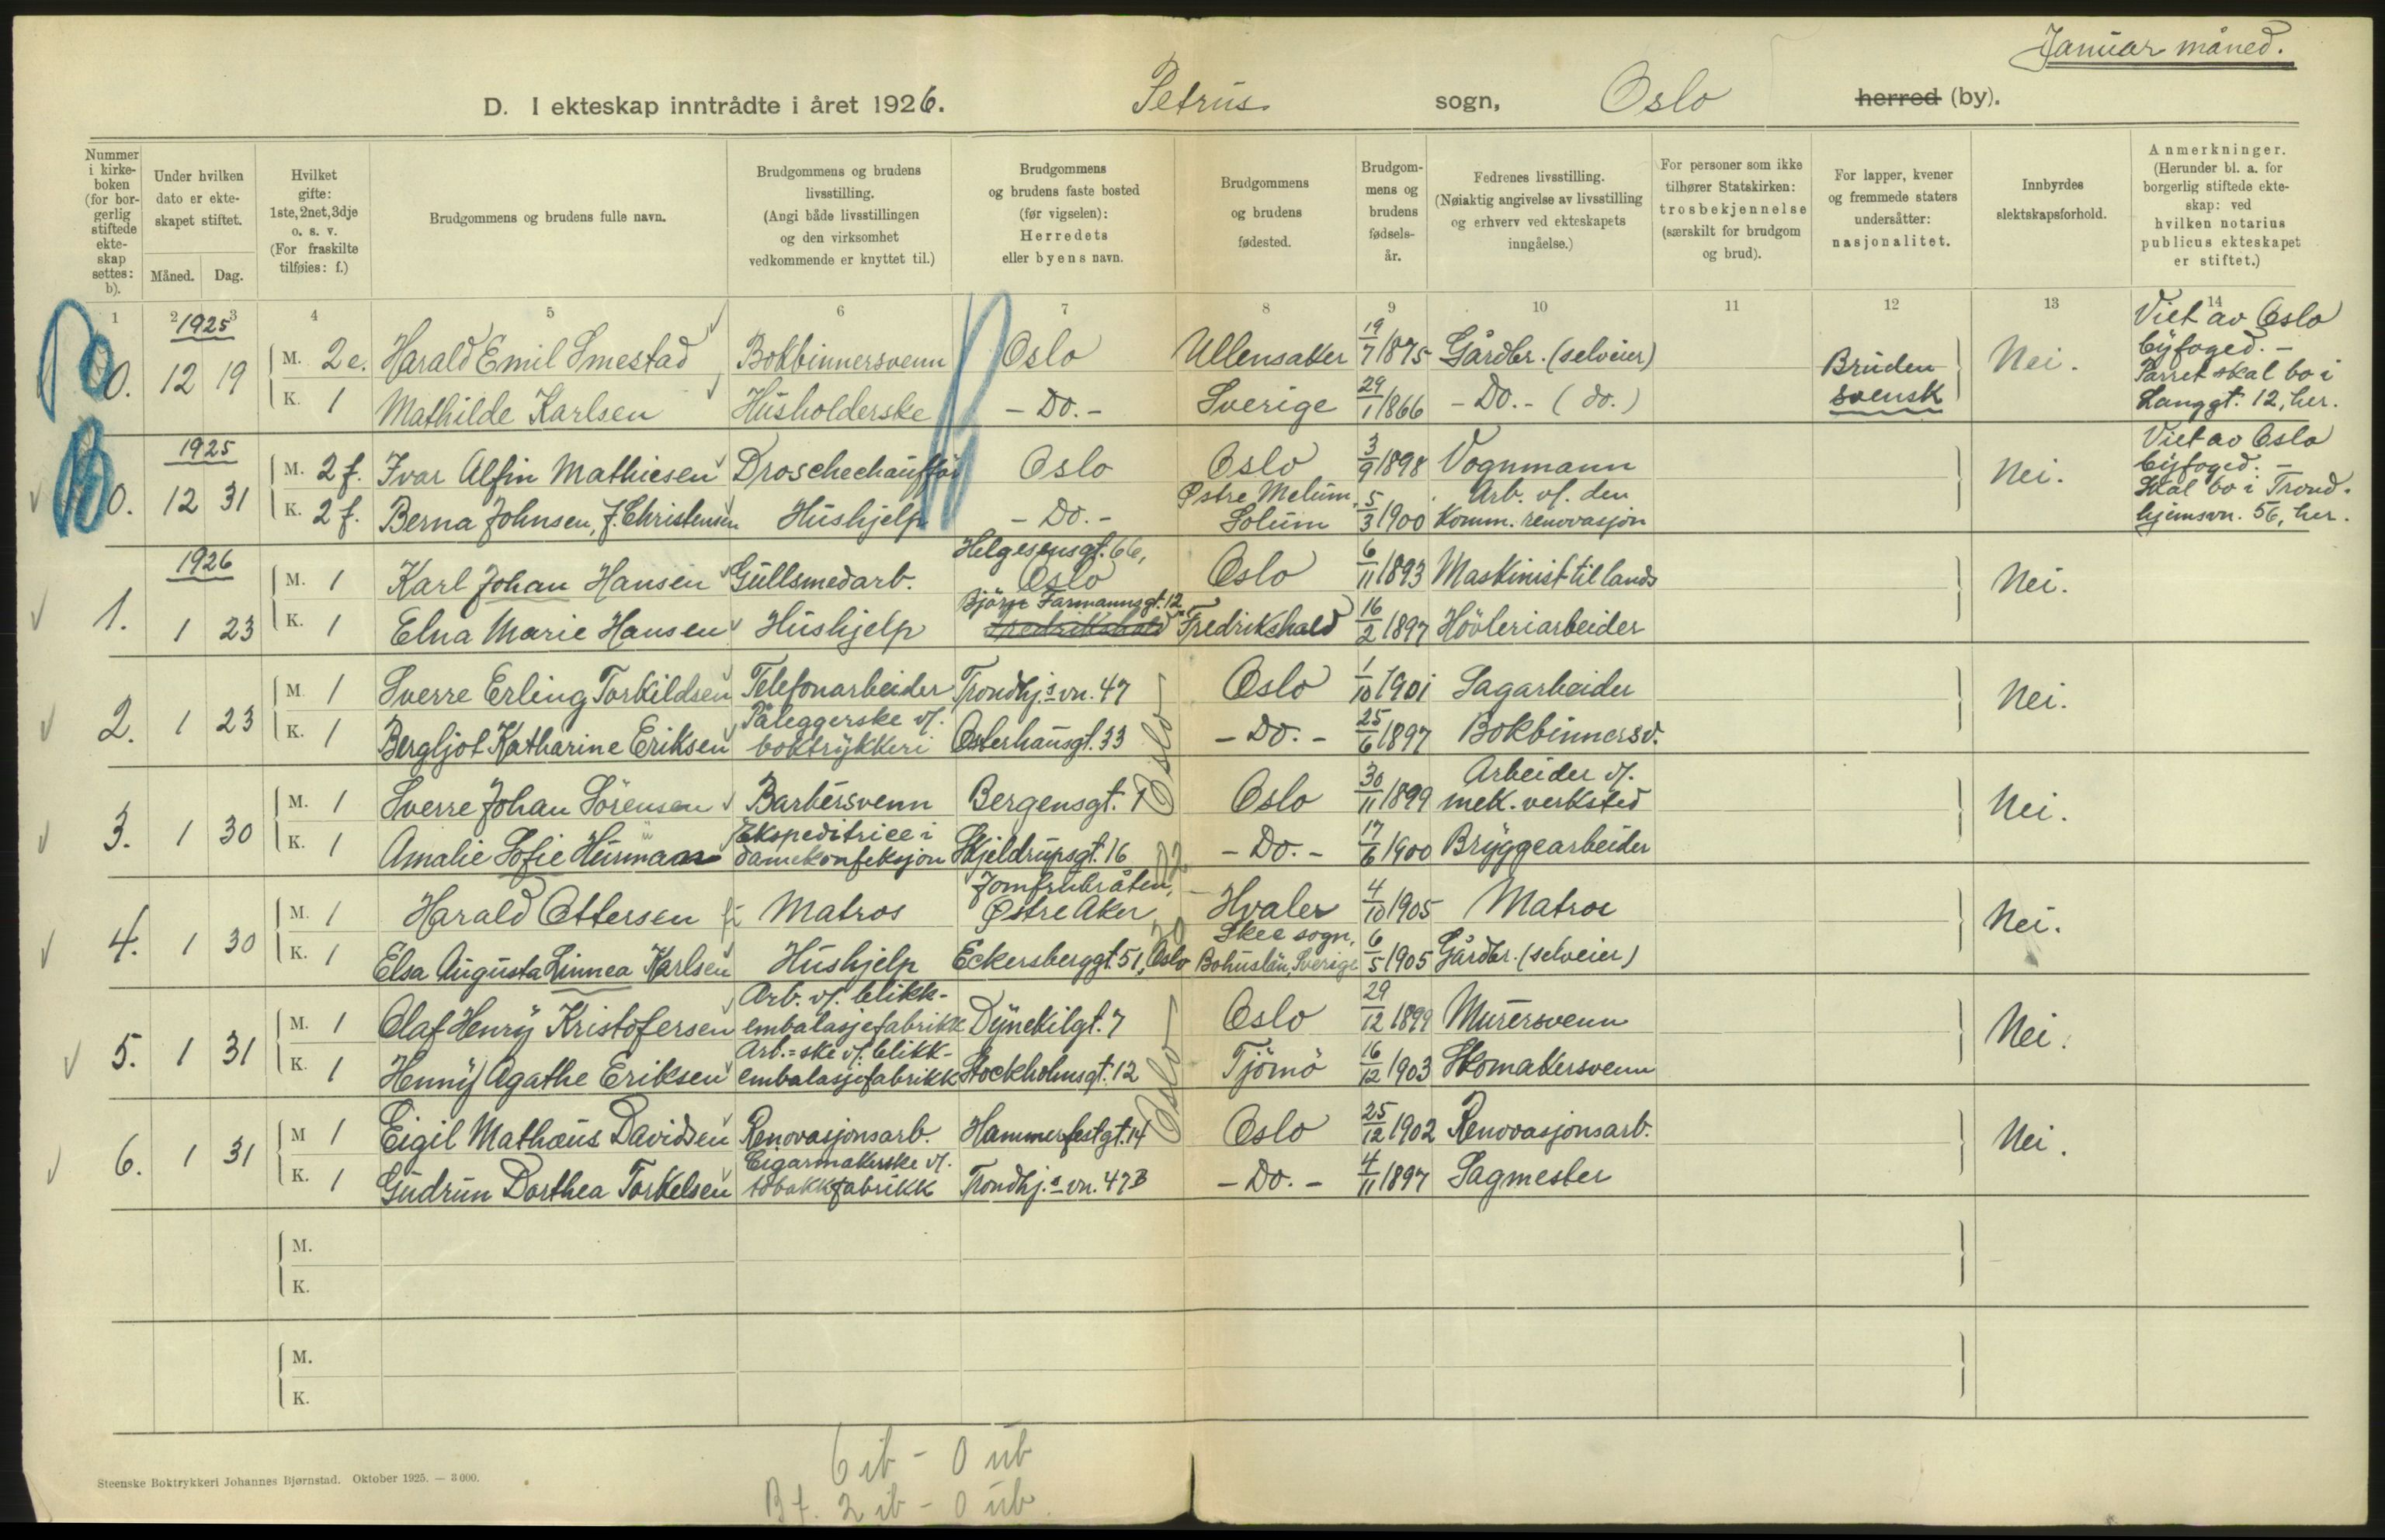 Januar måned.
D. I ekteskap inntrådte i året 1926. Petrus sogn, Oslo herred (by).
Nummer i kirkeboken (for borgerlig stiftede ekteskap settes: b).
Under hvilken dato er ekteskapet stiftet.
Måned. Dag.
Hvilket gifte: 1ste, 2net, 3dje o. s. v. (For fraskilte tilføies: f.)
Brudgommens og brudens fulle navn.
Brudgommens og brudens livsstilling. (Angi både livsstillingen og den virksomhet vedkommende er knyttet til.)
Brudgommens og brudens faste bosted (før vigselen): Herredets eller byens navn.
Brudgommens og brudens fødested.
Brudgommens og brudens fødselsår.
Fedrenes livsstilling. (Nøiaktig angivelse av livsstilling og erhverv ved ekteskapets inngåelse.)
For personer som ikke tilhører Statskirken: trosbekjennelse (særskilt for brudgom og brud).
For lapper, kvener og fremmede staters undersåtter: nasjonalitet.
Innbyrdes slektskapsforhold.
Anmerkninger. (Herunder bl. a. for borgerlig stiftede ekteskap: ved hvilken notarius publicus ekteskapet er stiftet.)
1 2 3 4 5 6 7 8 9 10 11 12 13 14
1925
0. 12 19 M. 2 e. Harald Emil Smestad Bokbinnersvenn Oslo Ullensaker 19/7 1875 Gårdbr. (selveier) Bruden svensk Nei. Viet av Oslo byfoged. – Parret skal bo i Langgt. 12, her.
K. 1 Mathilde Karlsen Husholderske - Do. - Sverige 29/1 1866 - Do. - (do.)
1925
0. 12 31 M. 2 f. Ivar Alfin Mathiesen Droschechauffør Oslo Oslo 3/9 1898 Vognmann Nei. Viet av Oslo byfoged. – Skal bo i Trondhjemsvn. 56, her.
K. 2 f. Berna Johnsen, f. Christensen Hushjelp - Do. - Østre Melum, Solum 5/3 1900 Arb. v/. den Komm. renovasjon
1926
1. 1 23 M. 1 Karl Johan Hansen Gullsmedarb. Helgesensgt. 66, Oslo Oslo 6/11 1893 Maskinist til lands Nei.
K. 1 Elna Marie Hansen Hushjelp Björn Farmannsgt. 12 Fredrikshald Fredrikshald 16/2 1897 Hövleriarbeider
2. 1 23 M. 1 Sverre Erling Torkildsen Telefonarbeider Trondhj.s vn. 47 Oslo Oslo 1/10 1901 Sagarbeider Nei.
K. 1 Bergljot Katharine Eriksen Påleggerske v/. boktrykkeri Osterhausgt. 33 - Do. - 25/6 1897 Bokbinnersv.
3. 1 30 M. 1 Sverre Johan Sörensen Barbersvenn Bergensgt. 1 Oslo 30/11 1899 Arbeider v/. mek. verksted Nei.
K. 1 Amalie Sofie Hurmaas Ekspeditrice i damekonfeksjon Skjeldrupsgt. 16 - Do. - 17/6 1900 Bryggearbeider
4. 1 30 M. 1 Harald Ottersen Matros Jomfrubråten, Østre Aker Hvaler 4/10 1905 Matros Nei.
K. 1 Elsa Augusta Linnea Karlsen Hushjelp Eckersberggt. 51, Oslo Skee sogn, Bohuslän, Sverige 6/5 1905 Gårdbr. (selveier)
5. 1 31 M. 1 Olaf Henry Kristofersen Arb. v/. blikkembalasjefabrikk Dynekilgt. 7 Oslo Oslo 29/12 1899 Murersvenn Nei.
K. 1 Henny Agathe Eriksen Arb.=ske v/. blikkembalasjefabrikk Stockholmsgt. 12 Tjömö 16/12 1903 Skomakersvenn
6. 1 31 M 1 Eigil Mathæus Davidsen Renovasjonsarb. Hammerfestgt. 14 Oslo 25/12 1902 Renovasjonsarb. Nei.
K. 1 Gudrun Dorthea Torkelsen Cigarmakerske v/. tobakkfabrikk Trondhj.s vn. 47B - Do. - 4/11 1897 Sagmester
M.
K.
M.
K.
6 ib - 0 ub
Bf. 2 ib - 0 ub.
Steenske Boktrykkeri Johannes Bjørnstad. Oktober 1925. — 3 000.